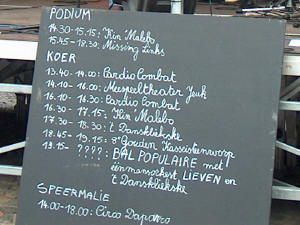 PODIUM
14.30-15.15: "Kin' Malebo
15.45-18.30: Missing Links
KOER
13.40-14.00: Cardio Combat
14.10-16.00: Mespeeltheater Jeuk
16.10-16.30: Cardio Combat
16.30-17.15: "Kin' Malebo
17.30-18.30: 't Dansklikske
18.45-19.15: 8e Gouden Kassistenworp
19.15- ????: BAL POPULAIRE met
éénmansorkest LIEVEN en
't Dansklikske
SPEERMALIE
14.00-18.00: Circo Daporro